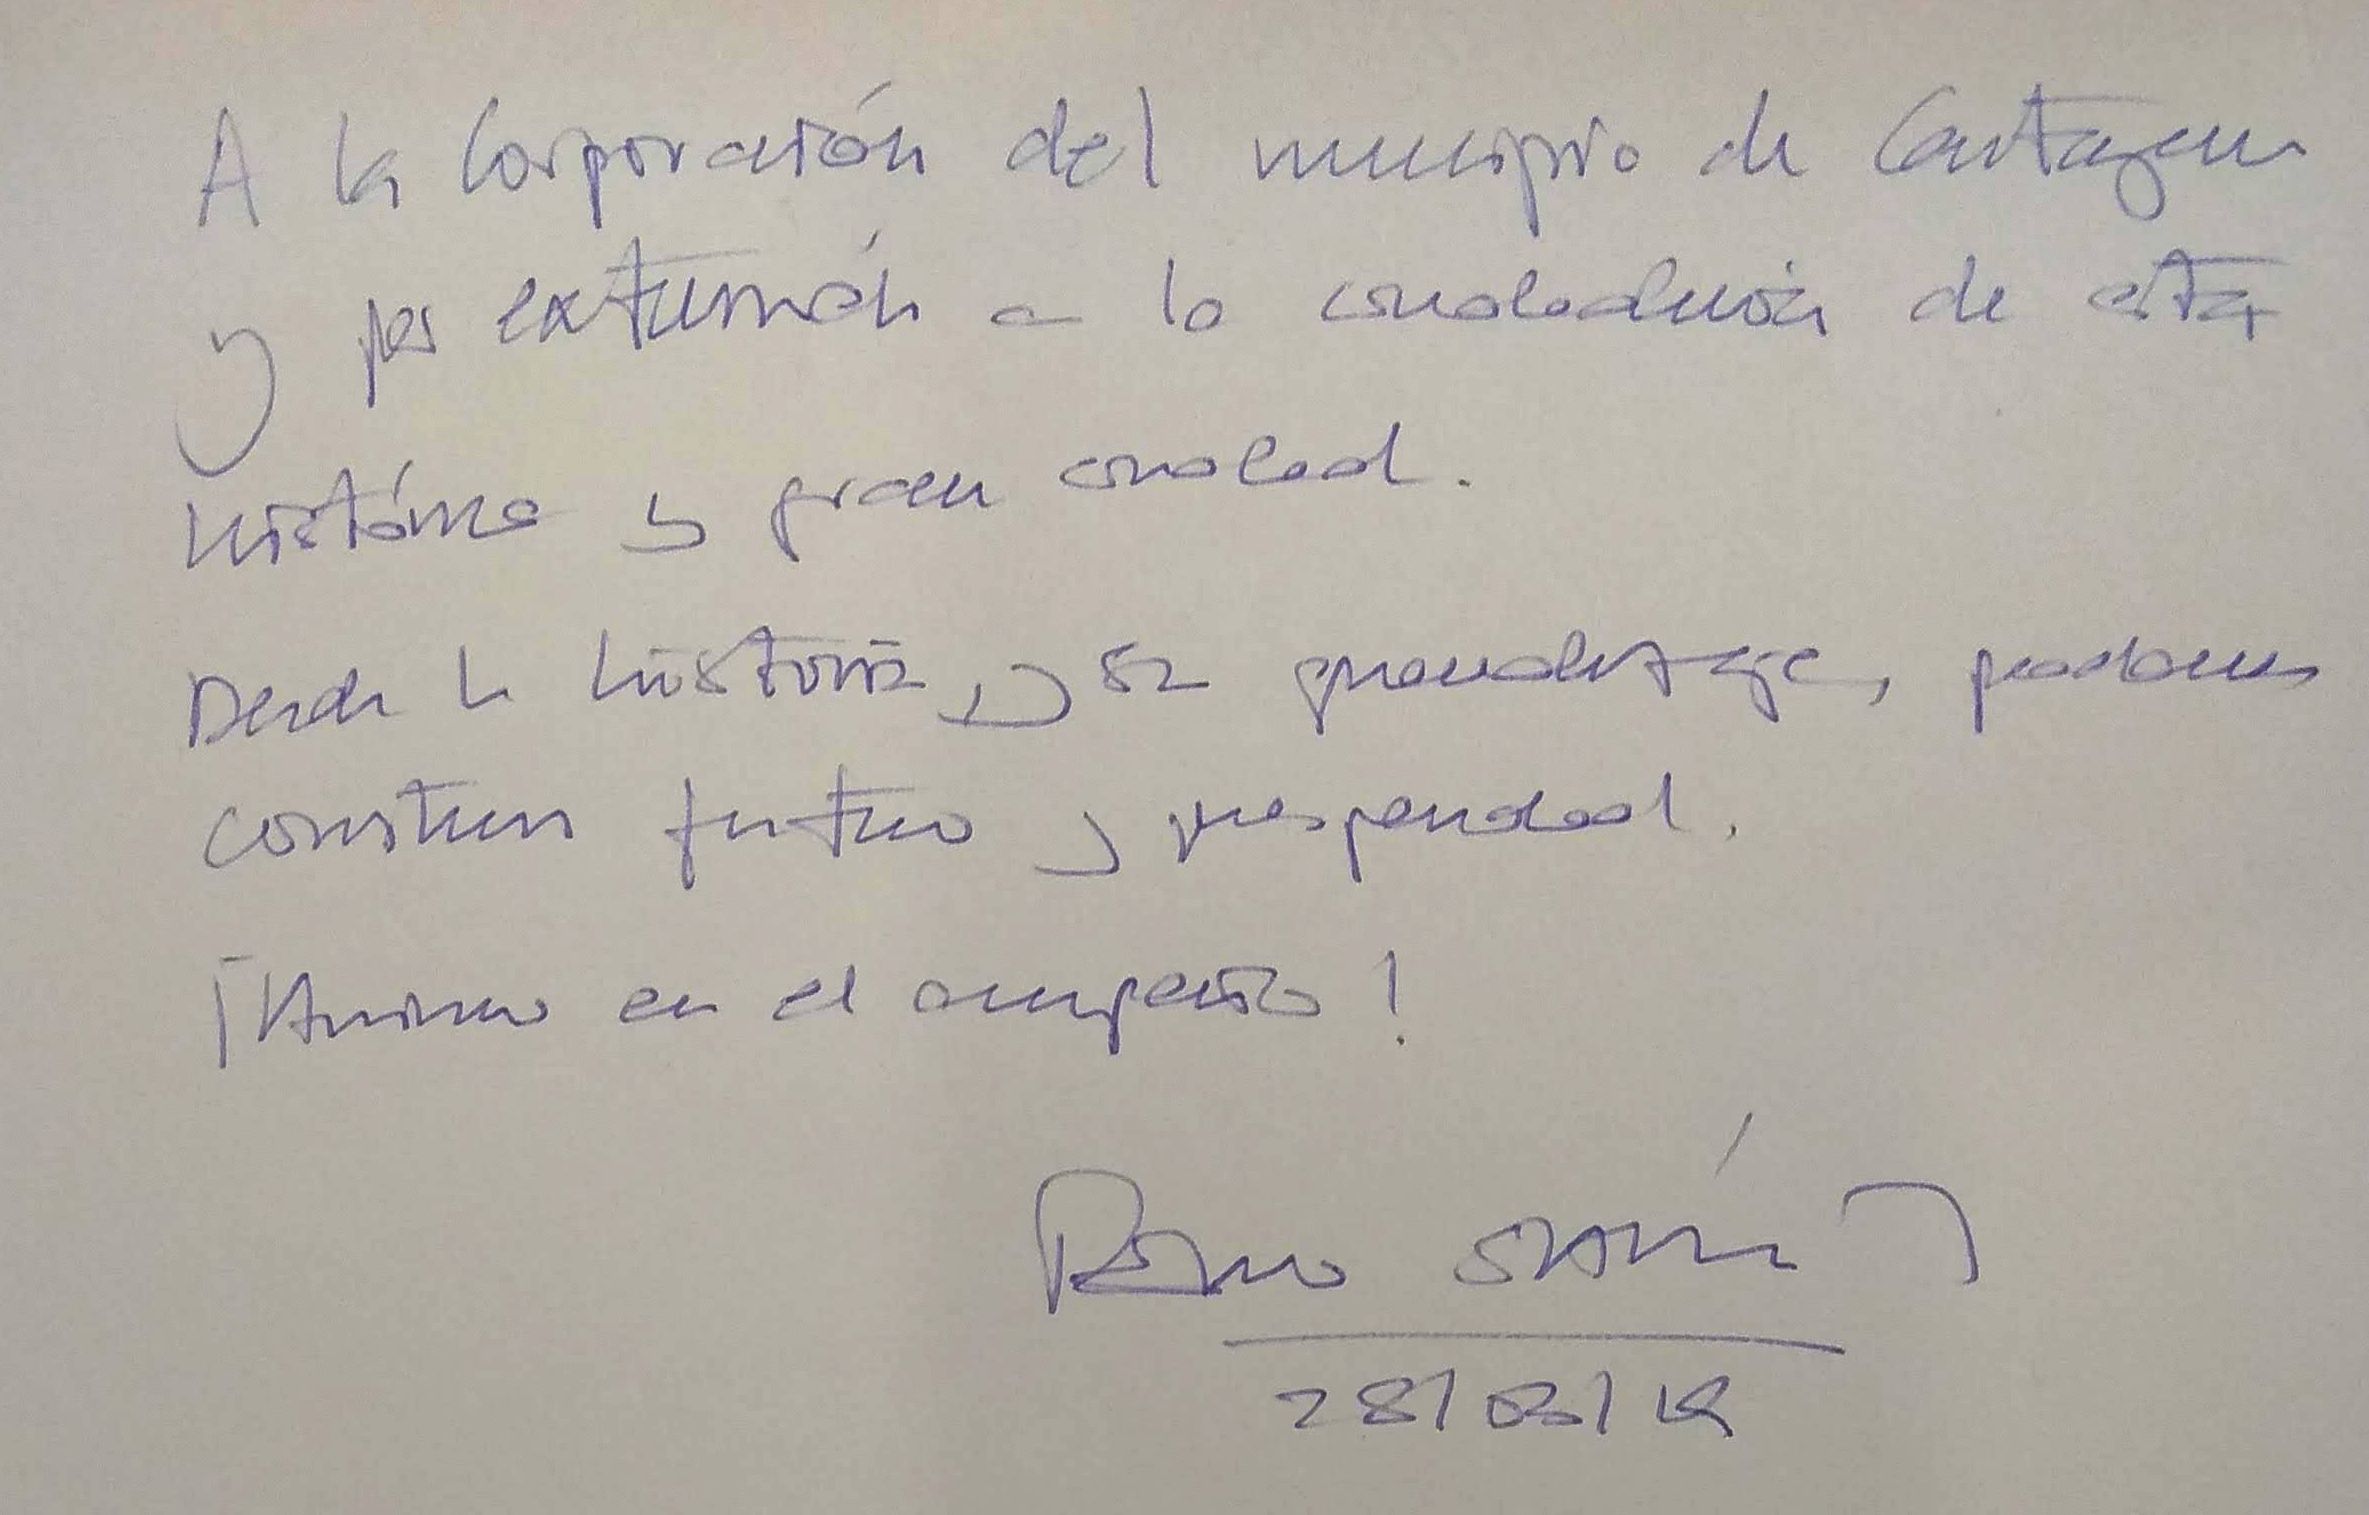 A la Corporación del municipio de Cartagena
y por extensión a la ciudadanía de esta
histórica y gran ciudad.
Desde la historia, y su, podemos
construir futuro y prosperidad.
¡Ánimo en el empeño!
Pedro Sánchez
28/03/19